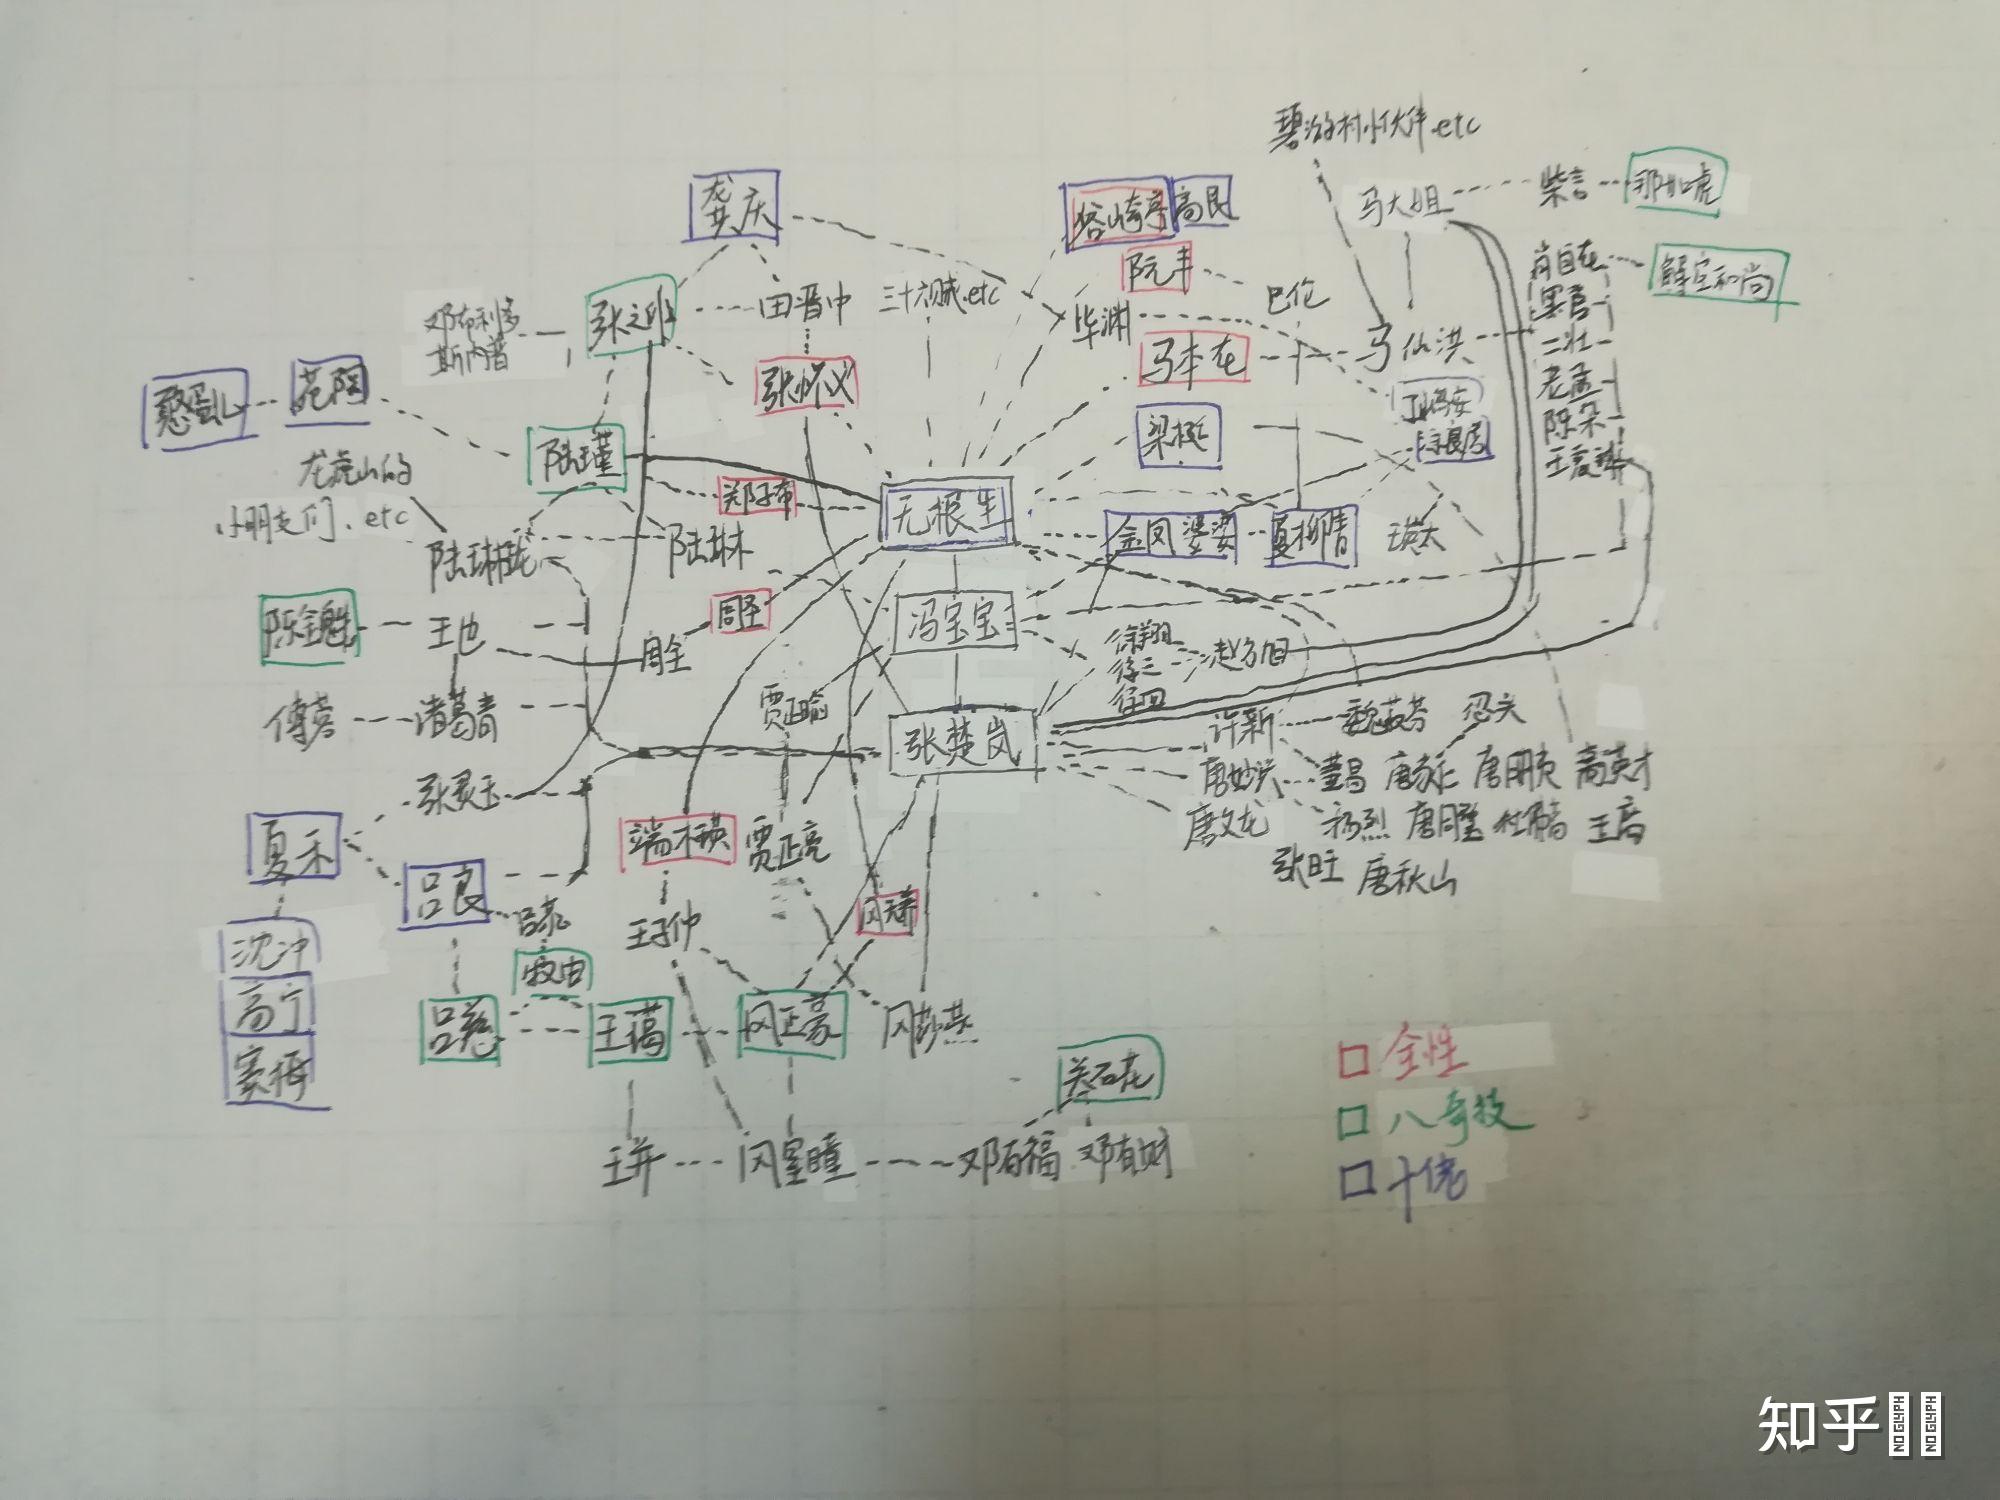 碧游村小伙伴.etc
马大姐
柴言
那如虎
龚庆
谷畸亭
高艮
阮丰
肖自在
解空和尚
黑管
二壮
老孟
陈朵
王震球
邓布利多
斯内普
张之维
田晋中
三十六贼.etc
毕渊
巴伦
马本在
马仙洪
憨蛋儿
苑陶
张怀义
丁嶋安
梁挺
陆瑾
郑子布
无根生
金凤 婆婆
夏柳青
瑛太
龙虎山的
小朋友们、etc
陆玲珑
陆琳
陈金魁
王也
周全
周圣
冯宝宝
徐翔
徐三
徐四
赵方旭
傅蓉
诸葛青
贾正瑜
张楚岚
许新
忍头
张灵玉
唐妙兴
董昌
唐家仁
唐明夷
高英才
夏禾
端木瑛
贾正亮
唐文龙
杨烈
张旺
唐秋山
吕良
吕恭
王子仲
风天养
沈冲
高宁
窦梅
牧由
吕慈
王蔼
风正豪
风莎燕
关石花
王并
风星瞳
邓有福
邓有财
全性
八奇技
十佬
知乎